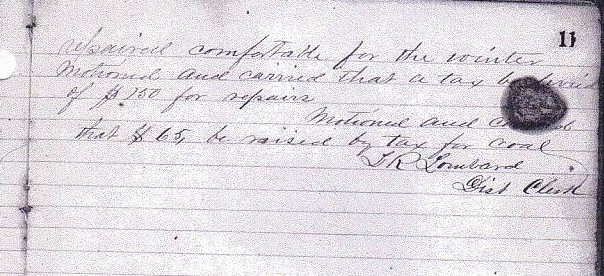 11
repaired comfortable for the winter
Motioned and carried that a tax be levied
of $150 for repairs
Motioned and
that $65, be raised by tax for coal
Lombard
Dist Clerk